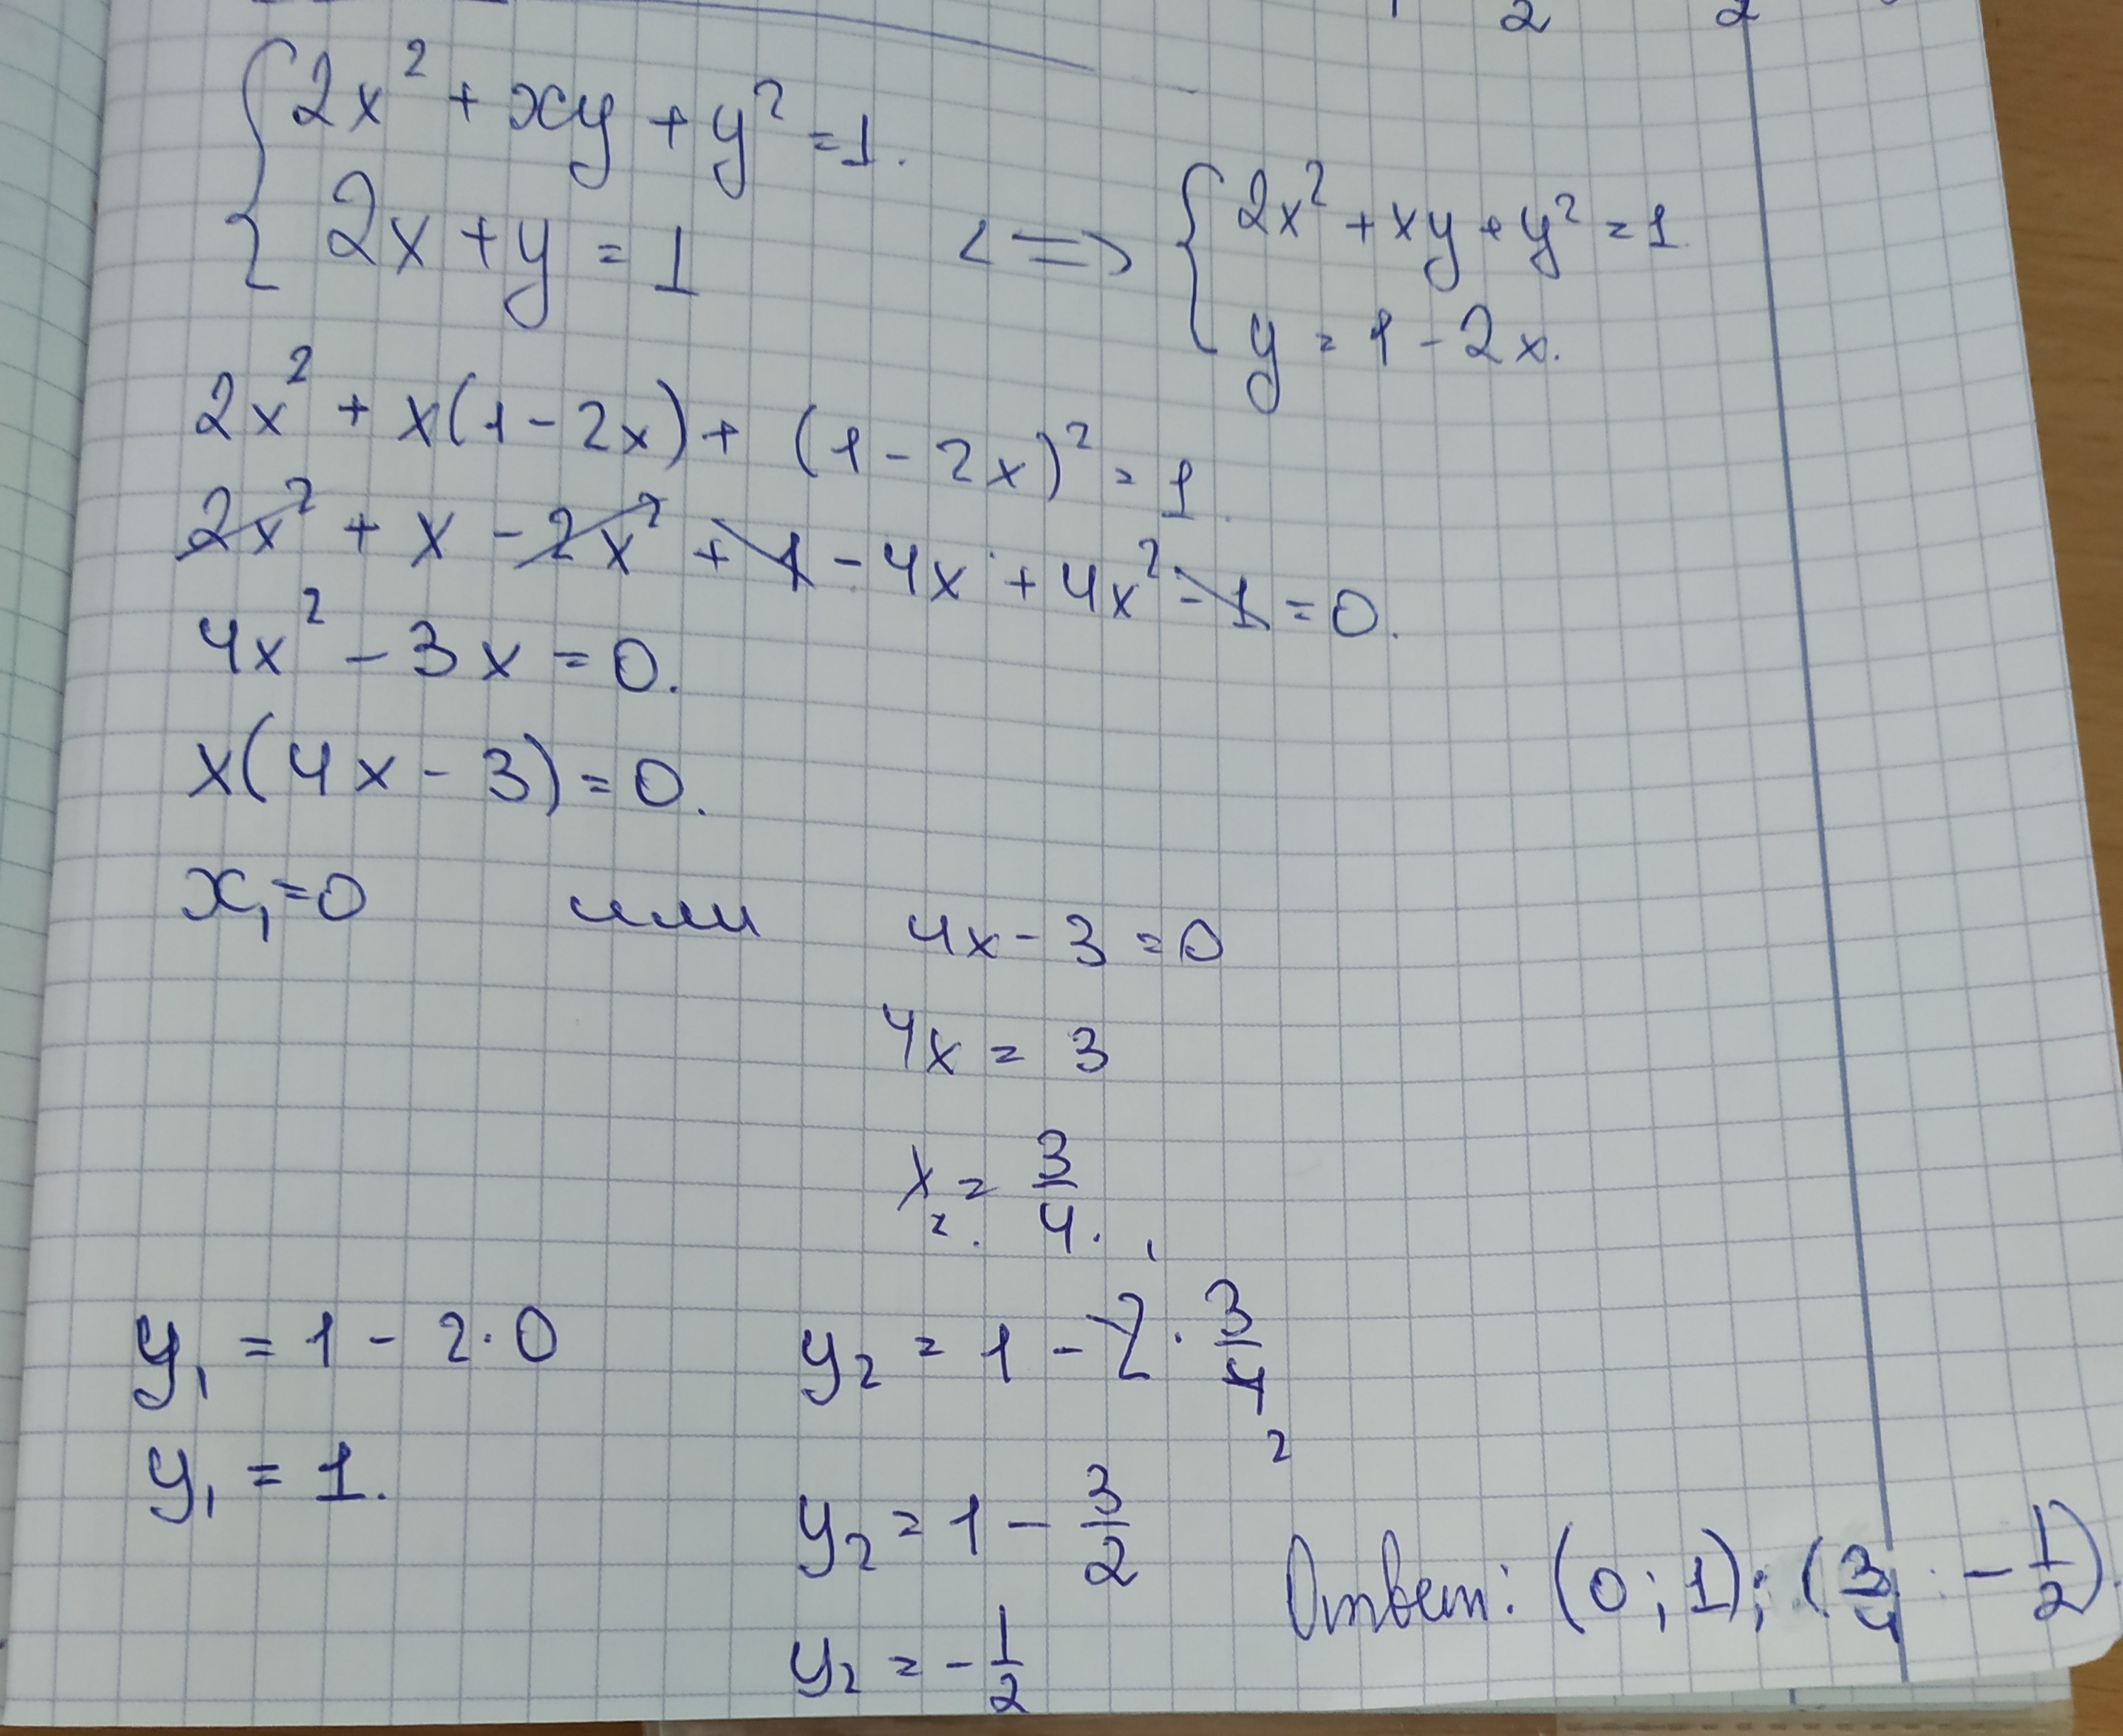 2 2
{ 2x² + xy + y² = 1.
{ 2x + y = 1 <=> { 2x² + xy + y² = 1
{ y = 1 - 2x.
2x² + x(1 - 2x) + (1 - 2x)² = 1.
2x² + x - 2x² + 1 - 4x + 4x² - 1 = 0.
4x² - 3x = 0.
x(4x - 3) = 0.
x₁ = 0 или 4x - 3 = 0
4x = 3
x₂ = 3/4.
y₁ = 1 - 2·0 y₂ = 1 - 2 · 3/4
2
y₁ = 1. y₂ = 1 - 3/2
Ответ: (0; 1); (3/4; -1/2).
y₂ = -1/2